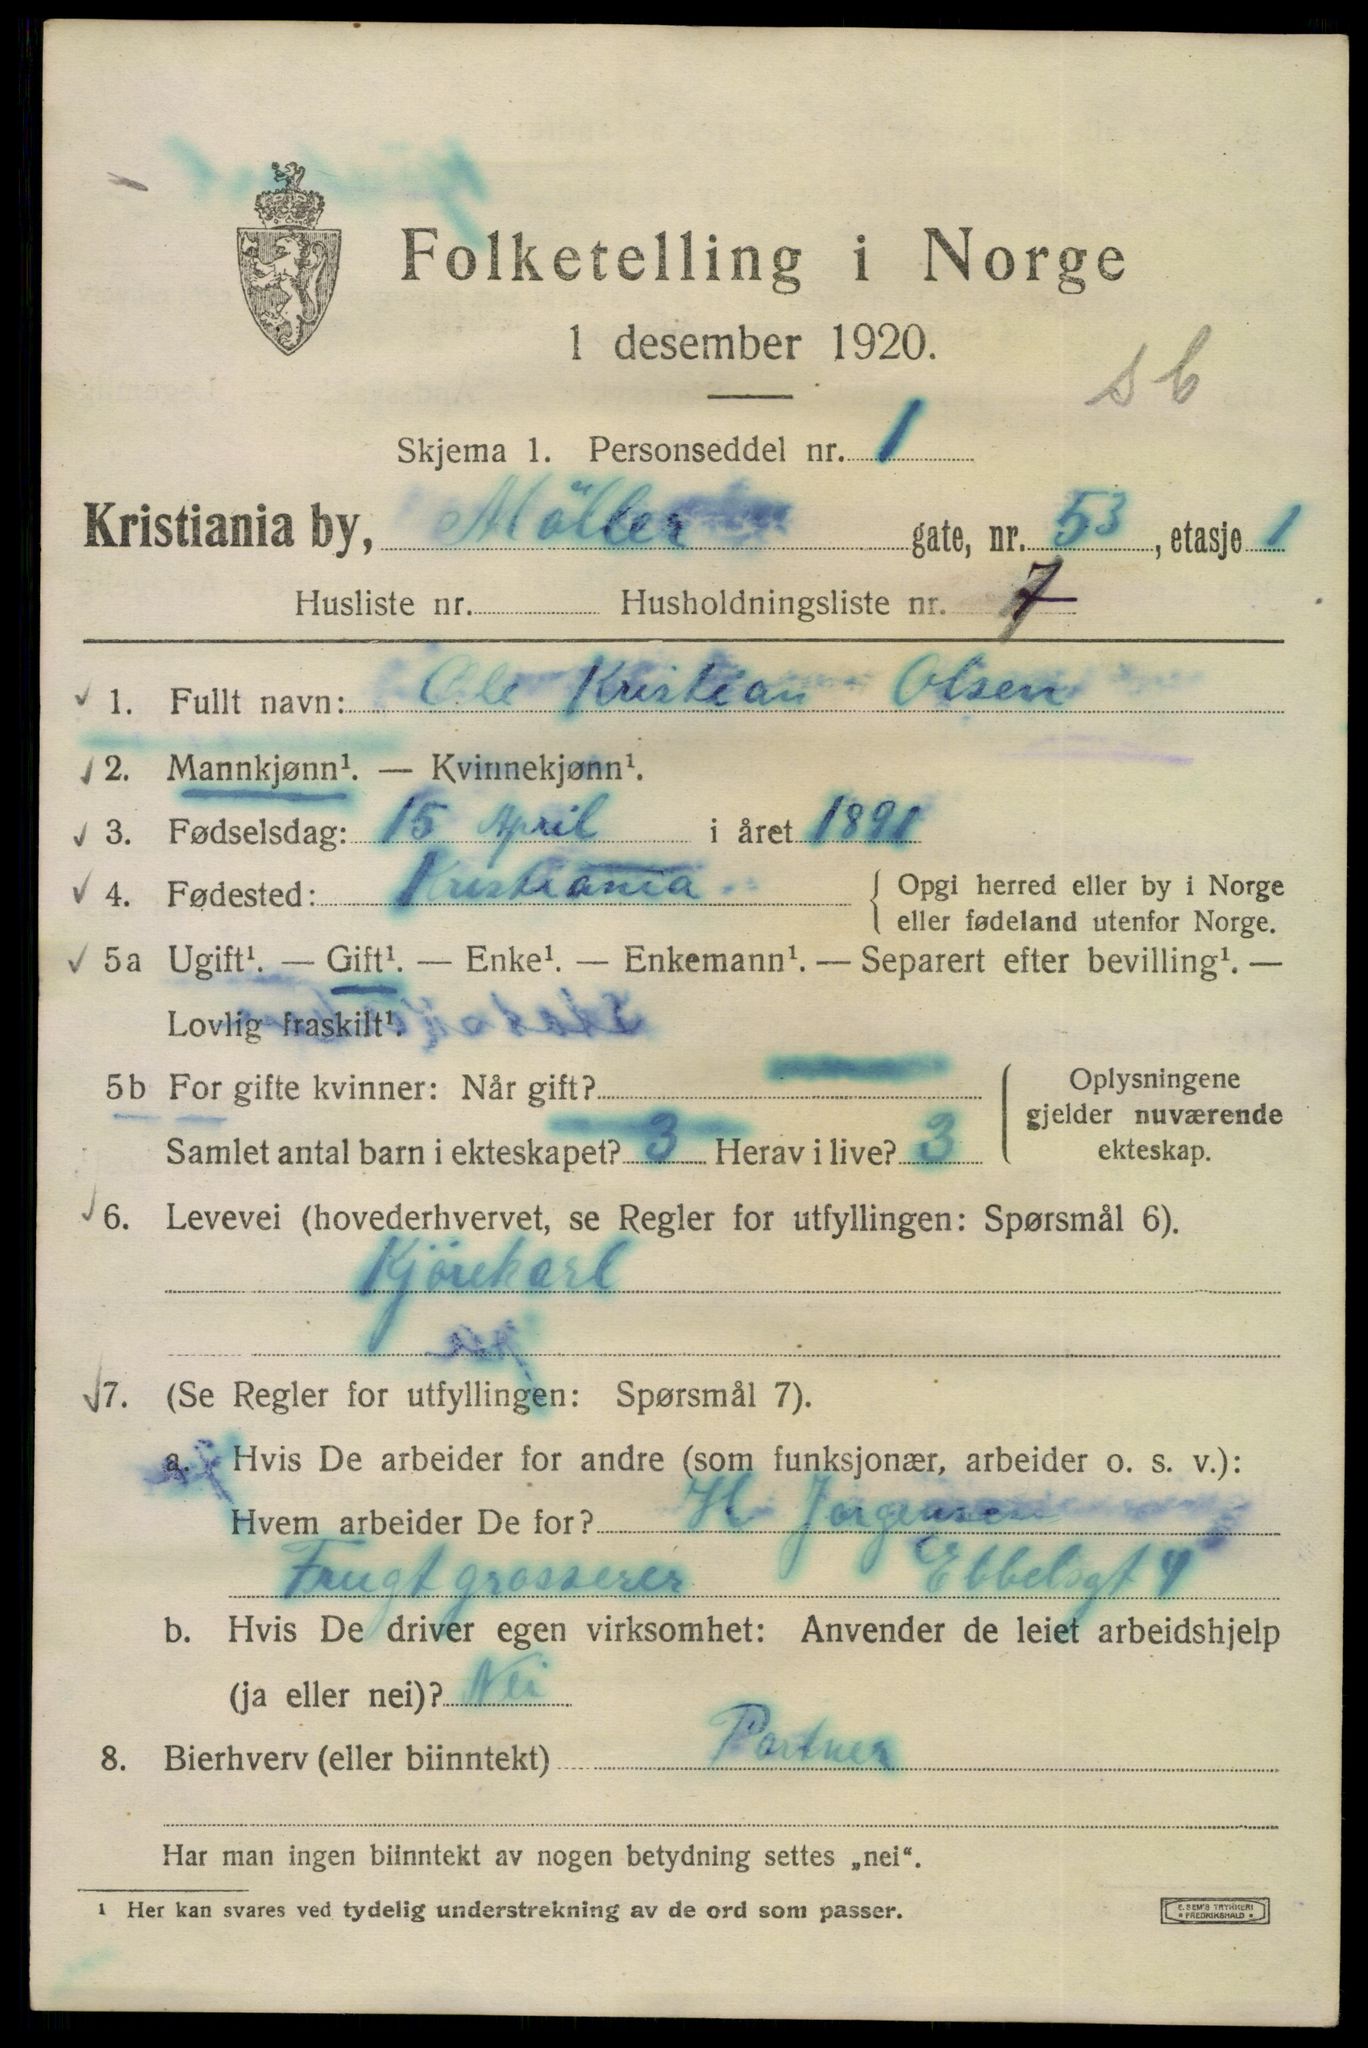 Folketelling i Norge
1 desember 1920.
s b
Skjema 1. Personseddel nr. 1
Kristiania by, Möller gate, nr. 53, etasje 1
Husliste nr. Husholdningsliste nr. 7
1. Fullt navn: Ole Kristian Olsen
2. Mannkjønn¹. — Kvinnekjønn¹.
3. Fødselsdag: 15 April i året 1891
4. Fødested: Kristiania { Opgi herred eller by i Norge
eller fødeland utenfor Norge.
5a Ugift¹. — Gift¹. — Enke¹. — Enkemann¹. — Separert efter bevilling¹. —
Lovlig fraskilt¹.
5b For gifte kvinner: Når gift? Oplysningene
gjelder nuværende
Samlet antal barn i ekteskapet? 3 Herav i live? 3 ekteskap.
6. Levevei (hovederhvervet, se Regler for utfyllingen: Spørsmål 6).
Kjörekarl
7. (Se Regler for utfyllingen: Spørsmål 7).
a. Hvis De arbeider for andre (som funksjonær, arbeider o. s. v.):
Hvem arbeider De for? H Jorgensen
Frugt grosserer Ebbelsgt 4
b. Hvis De driver egen virksomhet: Anvender de leiet arbeidshjelp
(ja eller nei)? Nei
8. Bierhverv (eller biinntekt) Portner
Har man ingen biinntekt av nogen betydning settes „nei“.
¹ Her kan svares ved tydelig understrekning av de ord som passer.
E. SEM'S TRYKKERI
FREDRIKSHALD